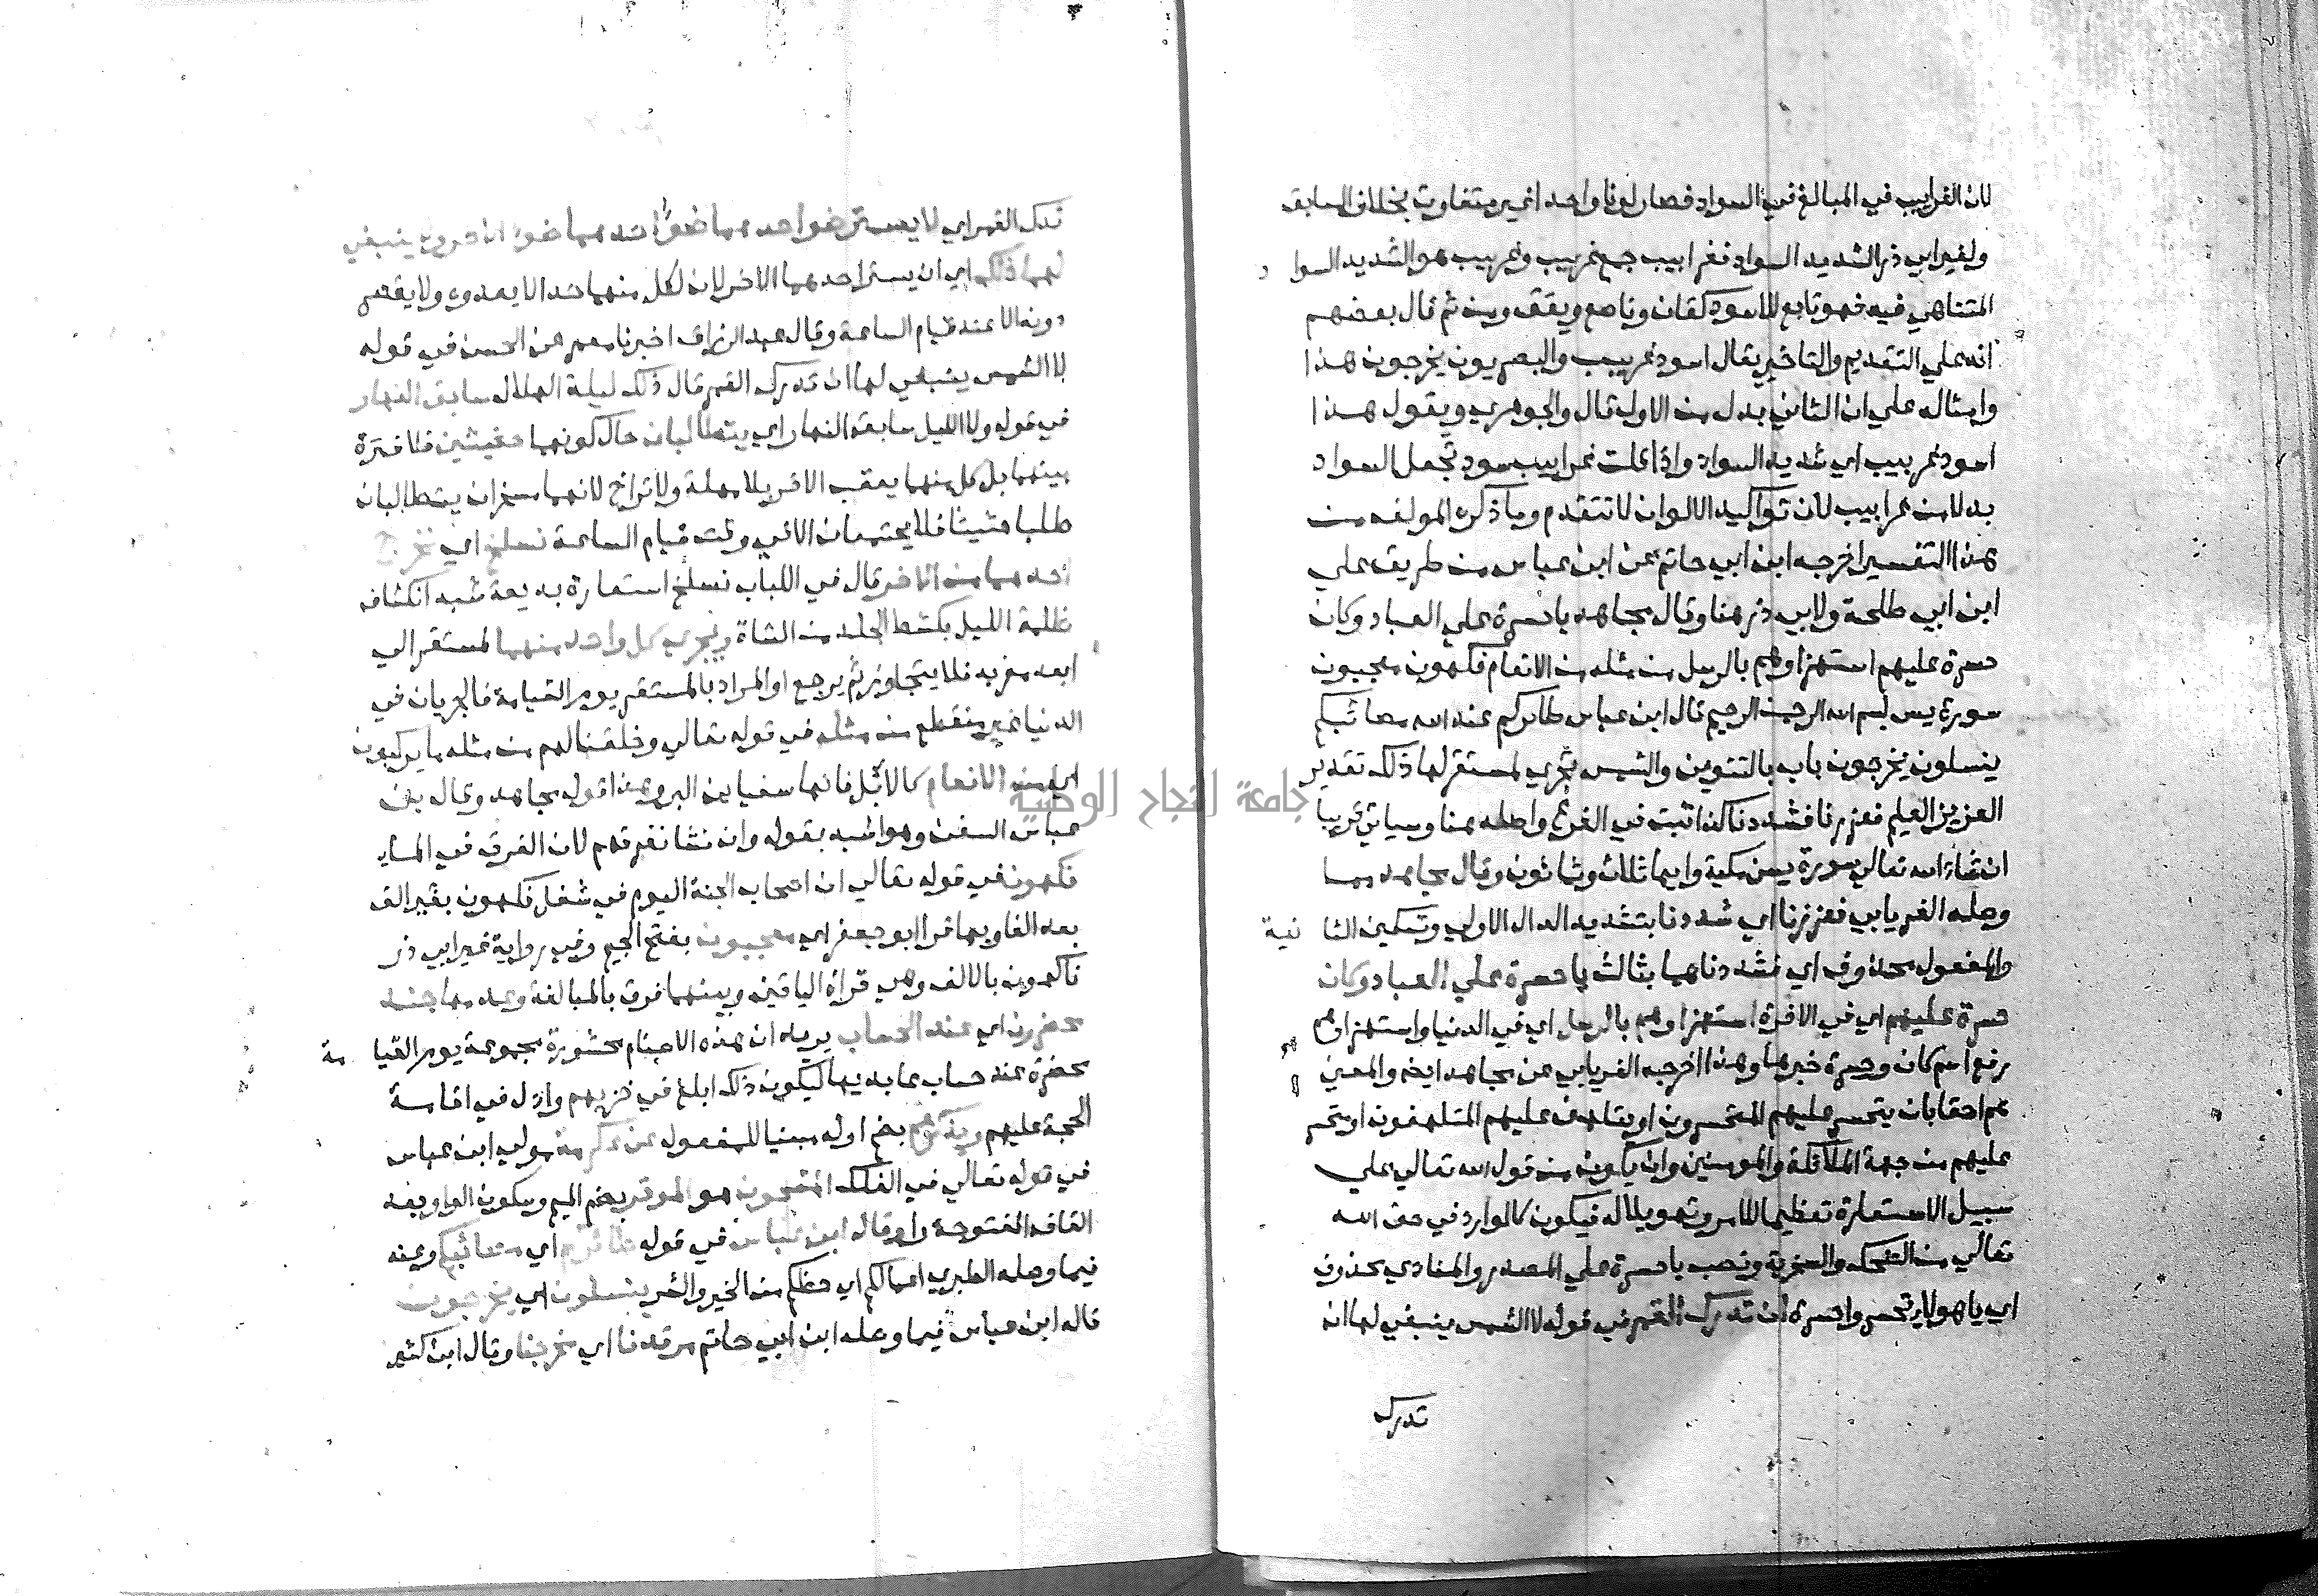 لان الغرابيب في المبالغ في السواد فصار لونا واحد اغير متفاوت بخلاف السابق
ولغير ابي ذر الشديد السواد فغرابيب جمع غربيب وغربيب هو الشديد السواد
المتناهي فيه فهو تابع للاسود كقان وناصع ويقق ومن ثم قال بعضهم
انه علي التقديم والتاخير يقال اسود غربيب والبصريون يخرجون هذا
وامثاله علي ان الثاني بدل من الاول قال والجوهري ويقول هذا
اسود غربيب اي شديد السواد واذا قلت غرابيب سود تجعل السواد
بدلا من غرابيب لان تواكيد الالوان لا تتقدم وما ذكره المولف من
هذا التفسير اخرجه ابن ابي حاتم عن ابن عباس من طريق علي
ابن ابي طلحة ولابي ذر هنا وقال مجاهد يا حسرة علي العباد وكان
حسرة عليهم استهزاوهم بالرسل من مثله من الانعام فكهون معجبون
سورة يس بسم الله الرحمن الرحيم قال ابن عباس طائركم عند الله مصائبكم
ينسلون يخرجون باب بالتنوين والشمس تجري لمستقر لها ذلك تقدير
العزيز العليم فعززنا فشددنا كذا ثبت في الفرع واصله هنا وسياتي قريبا
ان شاء الله تعالي سورة يس مكية وايها ثلاث وثمانون وقال مجاهد مما
وصله الفريابي فعززنا اي شددنا بتشديد الدال الاولي وتسكين الثانية
والمفعول محذوف اي فشددناهما بثالث يا حسرة علي العباد وكان
حسرة عليهم اي في الاخرة استهزاوهم بالرسل اي في الدنيا واستهزاوهم
رفع اسم كان وحسرة خبرها وهذا اخرجه الفريابي عن مجاهد ايضا والمعني
هم احقا بان يتحسر عليهم المتحسرون او يتلهف عليهم المتلهفون او يتحسر
عليهم من جهة الملائكة والمومنين وان يكون من قول الله تعالي علي
سبيل الاستعارة تعظيما للامر وتهويلا له فيكون كالوارد في حق الله
تعالي من الضحك والسخرية ونصب يا حسرة علي المصدر والمنادي محذوف
اي يا هولاء تحسروا حسرة ان تدرك القمر في قوله لا الشمس ينبغي لها ان
تدرك
تدرك القمر اي لا يستر ضوا حدهما ضوا حدهما ضوا الاخر ولا ينبغي
لهما ذلك اي ان يستر احدهما الاخر لان لكل منهما حدا لا يعدوه ولا يقصر
دونه الا عند قيام الساعة وقال عبد الرزاق اخبرنا معمر عن الحسن في قوله
لا الشمس ينبغي لها ان تدرك القمر قال ذلك ليلة الهلال سابق النهار
في قوله ولا الليل سابق النهار اي يتطالبان حال كونهما حثيثين فلا فترة
بينهما بل كل منهما يعقب الاخر بلا مهلة ولا تراخ لانهما مسخران يتطالبان
طلبا حثيثا فلا يجتمعان الا في وقت قيام الساعة نسلخ اي نخرج
احدهما من الاخر قال في اللباب نسلخ استعارة بديعة شبه انكشاف
ظلمة الليل بكشط الجلد من الشاة ونجري كل واحد منهما لمستقر الي
ابعد مغربه فلا يتجاوزه ثم يرجع او المراد بالمستقر يوم القيامة فالجريان في
الدنيا غير منقطع من مثله في قوله تعالي وخلقنا لهم من مثله ما يركبون
اي من الانعام كالابل فانها سفاين البر وهذا قول مجاهد وقال بن
عباس السفن وهو اشبه بقوله وان نشا نغرقهم لان الغرق في الماء
فكهون في قوله تعالي ان اصحاب الجنة اليوم في شغل فكهون بغير الف
بعد الفا وبها قرا ابو جعفر اي معجبون بفتح الجيم وفي رواية غير ابي ذر
فاكهون بالالف وهي قراة الباقين وبينهما فرق بالمبالغة وعدمها جند
محضرون اي عند الحساب يريد ان هذه الاصنام محشورة مجموعة يوم القيامة
محضرة عند حساب عابديها ليكون ذلك ابلغ في خزيهم وادل في اقامة
الحجة عليهم ويذكر بضم اوله مبنيا للمفعول عن عكرمة مولي ابن عباس
في قوله تعالي في الفلك المشحون هو الموقر بضم الميم وسكون الواو وبعد
القاف المفتوحة را وقال ابن عباس في قوله طائركم اي مصائبكم وعنه
فيما وصله الطبري اعمالكم اي حظكم من الخير والشر ينسلون اي يخرجون
قاله ابن عباس فيما وصله ابن ابي حاتم مرقدنا اي مخرجنا وقال ابن كثير
جامعة النجاح الوطنية